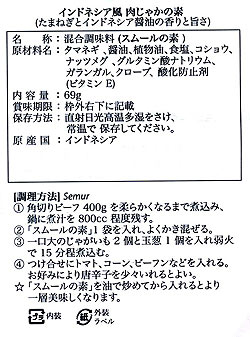 インドネシア風 肉じゃがの素
(たまねぎとインドネシア醤油の香りと旨さ)
名 称: 混合調味料 (スムールの素)
原材料名: タマネギ 、醤油、植物油、食塩、コショウ、
ナッツメグ 、グルタミン酸ナトリウム、
ガランガル、クローブ、酸化防止剤
(ビタミン E)
内 容 量: 69g
賞味期限: 枠外右下に記載
保存方法: 直射日光高温多湿をさけ、
常温で 保存してください。
原 産 国: インドネシア
[調理方法] Semur
① 角切りビーフ 400g を柔らかくなるまで煮込み、
鍋に煮汁を 800cc 程度残す。
② 「スムールの素」1 袋を入れ、よくかき混ぜる。
③ 一口大のじゃがいも 2 個と玉葱 1 個を入れ弱火
で 15 分程煮込む。
④ つけ合せにトマト、コーン、ビーフンなどを入れる。
お好みにより唐辛子を少々いれるとよい。
☆ 「スムールの素」を油で炒めてから入れるとより
一層美味しくなります。
プラ 内装 紙 外装
ラベル